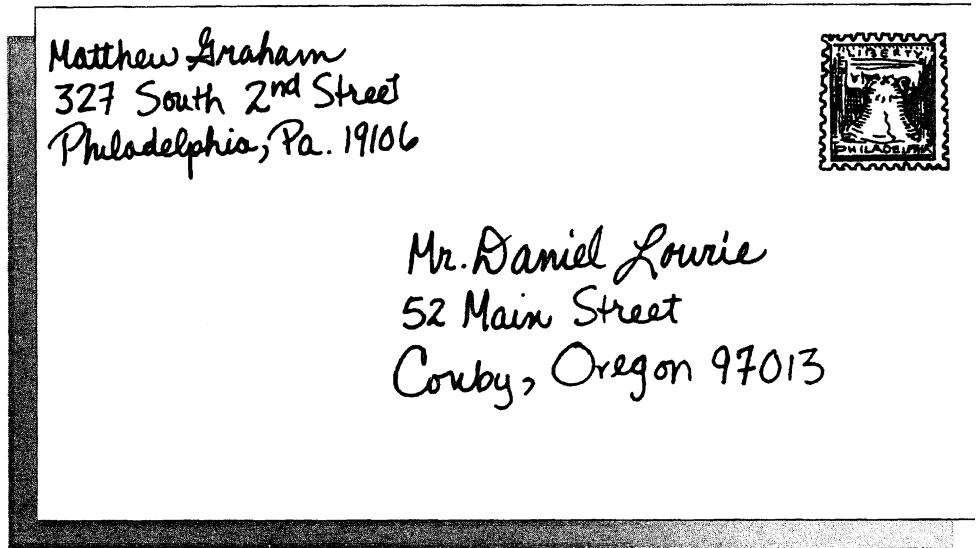 Matthew Graham
327 South 2nd Street
Philadelphia, Pa. 19106
LIBERTY
PHILADELPHIA
Mr. Daniel Lourie
52 Main Street
Conby, Oregon 97013